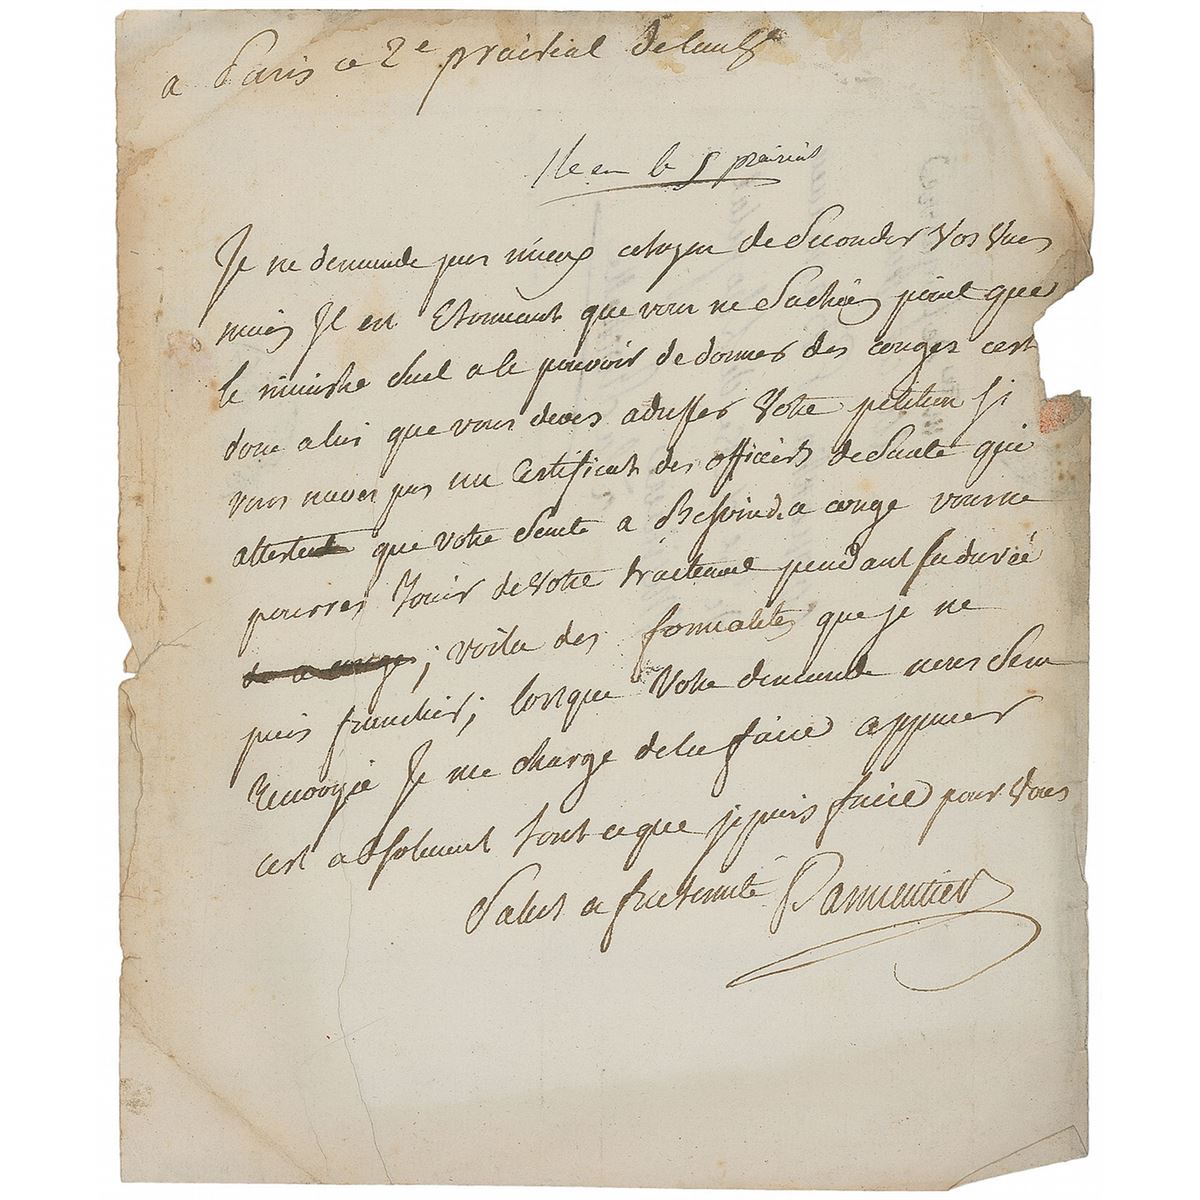 a Paris ce 2e prairial de lan
le 5 prairial
Je ne demande pas mieux citoyen de Seconder Vos Vues
mais Jl est Etonnant que vous ne Sachiés point que
le ministre Seul a le pouvoir de donner des congez cest
donc a lui que vous devés adresser Votre petition Si
vous navez pas un Certificat des officiers de Santé qui
attestent que votre Santé a Besoind.a congé vous ne
pourres Jouir de Votre traitement pendant sa durée
; voila des formalités que je ne
puis franchir; lorsque Votre demande mera Sera
Renvoyié Je me charge de la faire appuier
cest absolument tout ce que je puis faire pour Vous
Salut a fraternité Parmentier